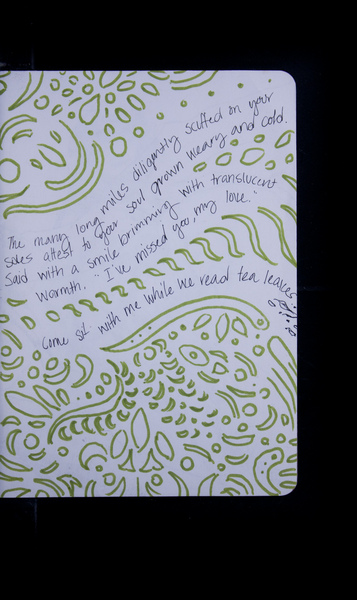 The many long miles diligently scuffed on your
soles attest to your soul grown weary and cold.
Said with a smile brimming with translucent
warmth. "I've missed you, my love."
Come sit with me while we read tea leaves